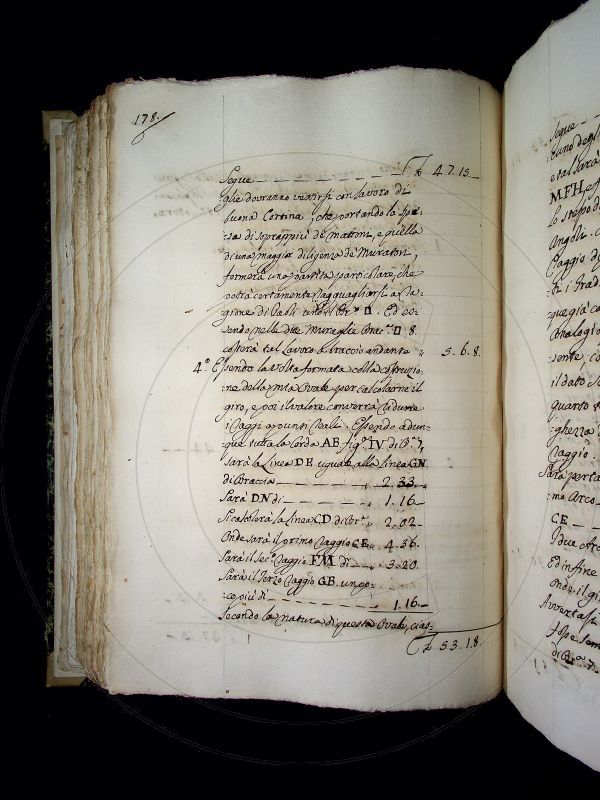 178.
Segue £ 47.15
glie dovranno vestirsi con lavoro di
buona Cortina, che portando la spe-
sa di soprappiù de Mattoni, e quella
di una maggior diligenza de Muratori,
formerà una partita particolare, che
potrà certamente ragguagliarsi a ra-
gione di Paoli
sendo nelle dte Muraglie Brac.a □ 8.
costerà tal Lavoro a braccio andante " 5.6.8.
4.° Essendo la volta formata colla costruzio-
ne della Ovale per calcolarne il
giro, e poi il valore converrà ridurre
i Raggi a punti Reali. Essendo adun-
que tutta la Corda AB fig.a IV di B.a 7,
sarà la Linea DE uguale alla Linea GN
di Braccia 2.33
Sarà DN di 1.16
Si calcolerà la linea CD di Br.a " 2.02
Onde sarà il primo Raggio CE " 4.36
Sarà il sec.° Raggio FM di 3.20
Sarà il Terzo Raggio GB un po-
co più di 1.16
Secondo la natura di questa Ovale, cias-
£ 53.1.8.
Segue
M.FH, e
lo stesso d
Angoli.
Raggio d
i Grad
que già co
Analogio
sente, co
il dato
quarto t
ghezza
Raggio.
Sarà porta
mo Arco
CE
I due Arc
Ed in fine
onde il gi
Avvertasi
di Br.a 7.